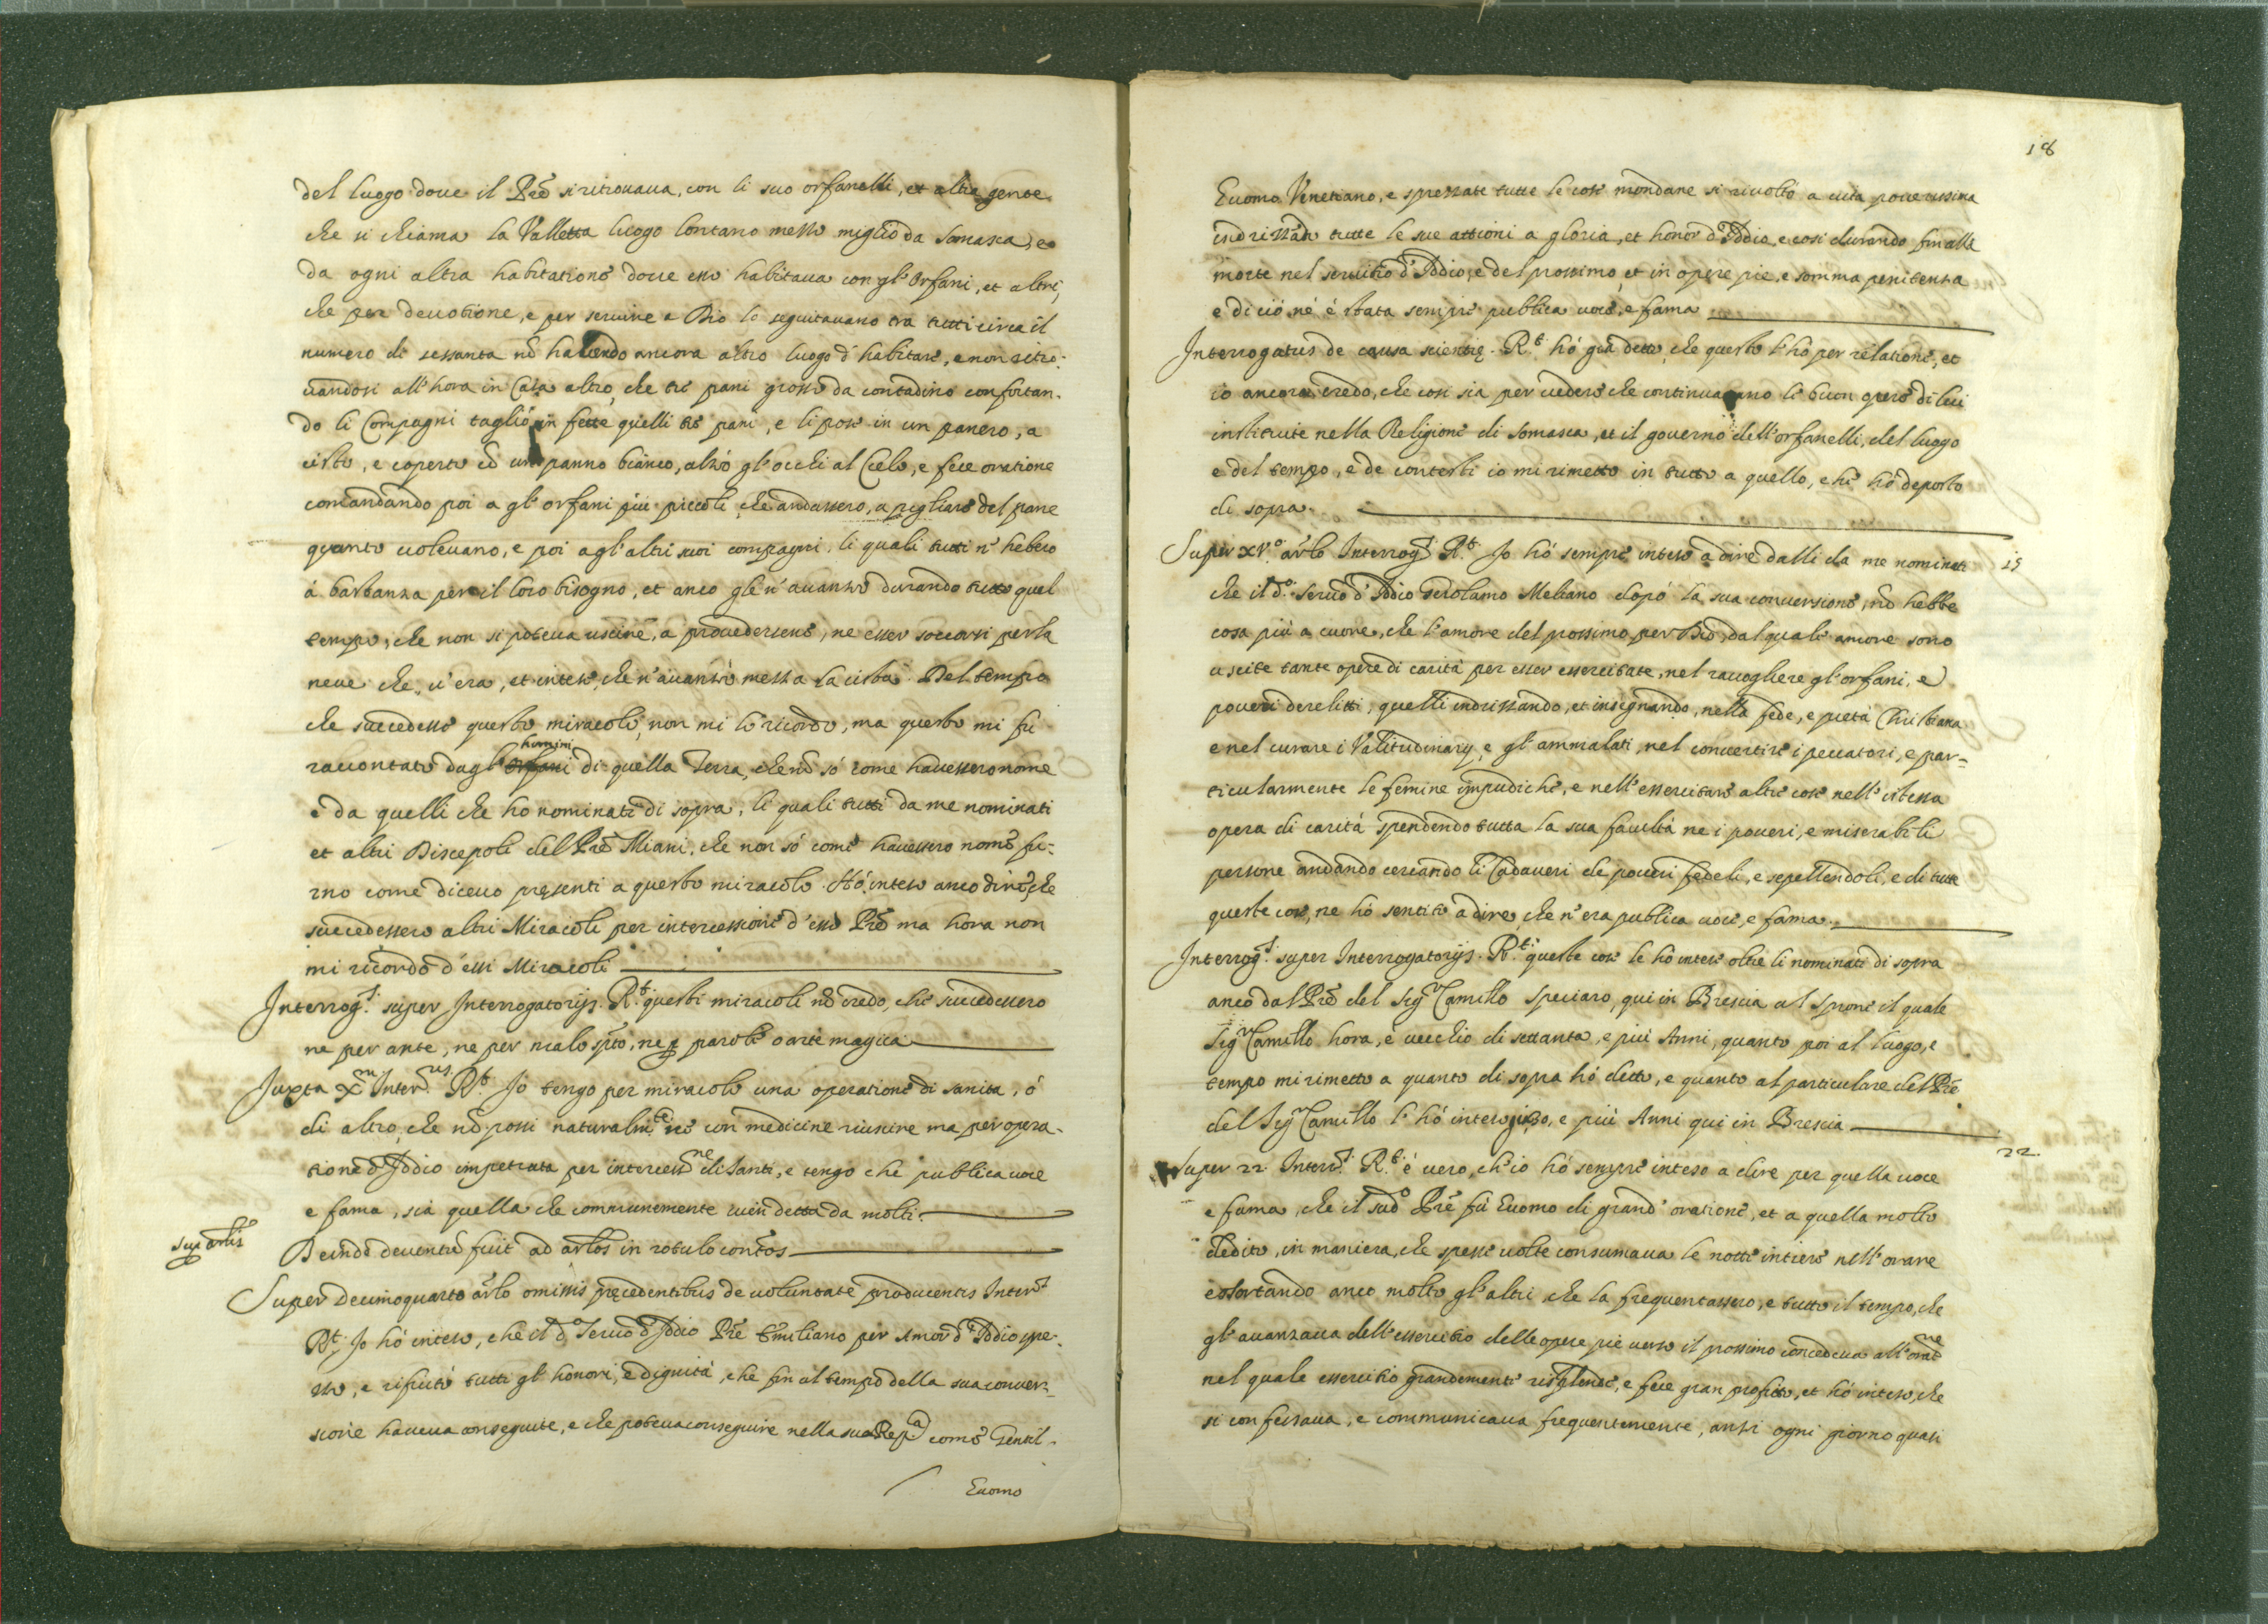 del luogo doue il Prē si ritrouaua, con li suo orfanelli, et altra gente
che si chiama la Valletta luogo lontano mezzo miglio da Somasca, e
da ogni altra habitatione doue esso habitaua con gl'Orfani, et altri,
che per deuotione, e per seruire a Dio lo seguitauano tra tutti circa il
numero di sessanta nō hauendo ancora altro luogo d'habitare, e non ritro:
uandosi all'hora in Casa altro, che tre pani grossi da contadino confortan.
do li Compagni tagliò in fette quelli tre pani, e li pose in un panero, a
cisto, e coperto cō un panno bianco, alzò gl'occhi al Cielo, e fece oratione
comandando poi a gl'orfani più piccoli che andassero, a pigliare del pane
quanto uoleuano, e poi agl'altri suoi compagni, li quali tutti n'hebero
á bastanza per il loro bisogno, et anco gle n'auanzò durando tutto quel
tempo, che non si poteua uscire, a prouedersene, ne esser soccorsi per la
neue che u'era, et intesi, che n'auanzò mezza la cista. Del tempo
che succedesse questo miracolo, non mi lo ricordo, ma questo mi fú
raccontato dagl' orfani homini di quella Terra, che nō só come hauessero nome
e da quelli che ho nominati di sopra, li quali tutti da me nominati
et altri Discepoli del Prē Miani, che non só come hauessero nome fu:
rno come diceuo presenti a questo miracolo. Hò inteso anco dire, che
succedessero altri Miracoli per intercessione d'esso Prē ma hora non
mi ricordo d'essi Miracoli
Interrog.s super Interrogatorijs. R.t questi miracoli nō credo, che succedessero
ne per arte, ne per malo sp̄to, ne p parole o arte magica
Juxta X.m Inter.us R.t Jo tengo per miracolo una operatione di sanità, ó
di altro, che nō possi naturalm.te ne con medicine riuscire ma per opera.
tione d'Iddio impetrata per intercess.ne di Santi, e tengo che publica uoce
e fama, sia quella che communemente uien detta da molti.
sup artlis
Deinde deuentū fuit ad artlos in rotulo contos
Super Decimoquarto artlo omissis precedentibus de uoluntate producentis Inter.s
R.t Jo hó inteso, che il d.o Seruo d'Iddio Prē Emiliano per Amor d'Iddio spre.
zzò, e rifiutò tutti gl'honori, e dignità, che fin al tempo della sua conuer:
sione haueua conseguite, e che poteua conseguire nella sua Rep.a come Gentil.
Euomo
18
Euomo Venetiano, e sprezzate tutte le cose mondane si riuoltó a uita pouerissima
indrizzādo tutte le sue attioni a gloria, et honor d'Iddio, e cosi durando fin alla
morte nel seruitio d'Iddio, e del prossimo, et in opere pie, e somma penitenza
e di ció né é stata sempre publica uoce, e fama
Interrogatus de causa scientię. R.t hó giá detto, che questo l'hó per relatione, et
io ancora credo, che cosi sia per uedere che continuauano le buon opere di lui
instituite nella Religione di Somasca, et il gouerno dell'orfanelli, del luogo
e del tempo, e de contesti io mi rimetto in tutto a quello, che hó deposto
di sopra.
Super XV.o artlo Interrog.s R.t Jo hó sempre inteso a dire dalli da me nominati
15
che il d.o Seruo d'Iddio Gerolamo Meliano dopó la sua conuersione, nō hebbe
cosa più a cuore, che l'amore del prossimo per Dio, dal quale amore sono
uscite tante opere di carità per esser essercitate, nel racogliere gl'orfani, e
poueri derelitti, quelli indrizzando, et insegnando, nella fede, e pietà Christiana
e nel curare i Valitudinarij, e gl'ammalati, nel conuertire i peccatori, e par=
ticularmente le femine impudiche, e nell'essercitare altre cose nell'istessa
opera di carità spendendo tutta la sua facultà ne i poueri, e miserabili
persone andando cercando li Cadaueri de poueri fedeli, e sepellendoli, e di tutte
queste cose, ne hó sentito a dire, che n'era publica uoce, e fama.
Interrog.s super Interrogatorijs. R.t queste cose le hó intese oltre li nominati di sopra
anco dal Prē del Sig.r Camillo Speciaro, qui in Brescia al Sprone il quale
Sig.r Camillo hora, é uecchio di settanta, e più Anni, quanto poi al luogo, e
tempo mi rimetto a quanto di sopra hó detto, e quanto al particulare del Prē
del Sig.r Camillo l'hó inteso, e più Anni qui in Brescia
Super 22 Interr.s R.t é uero, ch'io hó sempre inteso a dire per quella uoce
22.
e fama, che il sud.o Prē fú Euomo di grand'oratione, et a quella molto
dedito, in maniera, che spesse uolte consumaua le notti intiere nell'orare
esortando anco molto gl'altri, che la frequentassero, e tutto il tempo, che
gl'auanzaua dell'essercitio delle opere pie uerso il prossimo concedeua all'orat.ne
nel quale essercitio grandemente risplende, e fece gran profitto, et hó inteso, che
si confessaua, e communicaua frequentemente, anzi ogni giorno quasi